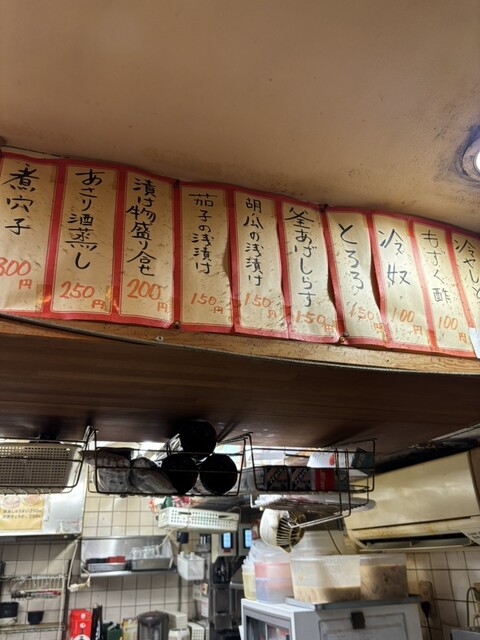 煮穴子
300円
あさり酒蒸し
250円
漬け物盛り合せ
200円
茄子の浅漬け
150円
胡瓜の浅漬け
150円
釜あげしらす
150円
とろろ
150円
冷奴
100円
もずく酢
100円